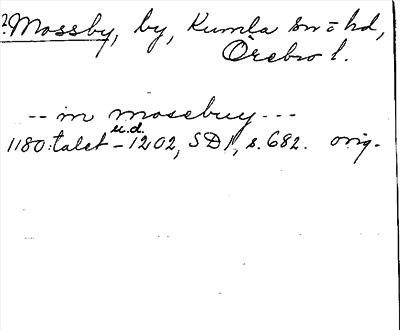 2 Mossby, by, Kumla sn o hd,
Örebro l.
-- in mosebuy ---
u.d.
1180-talet - 1202, SD 1, s. 682. orig.